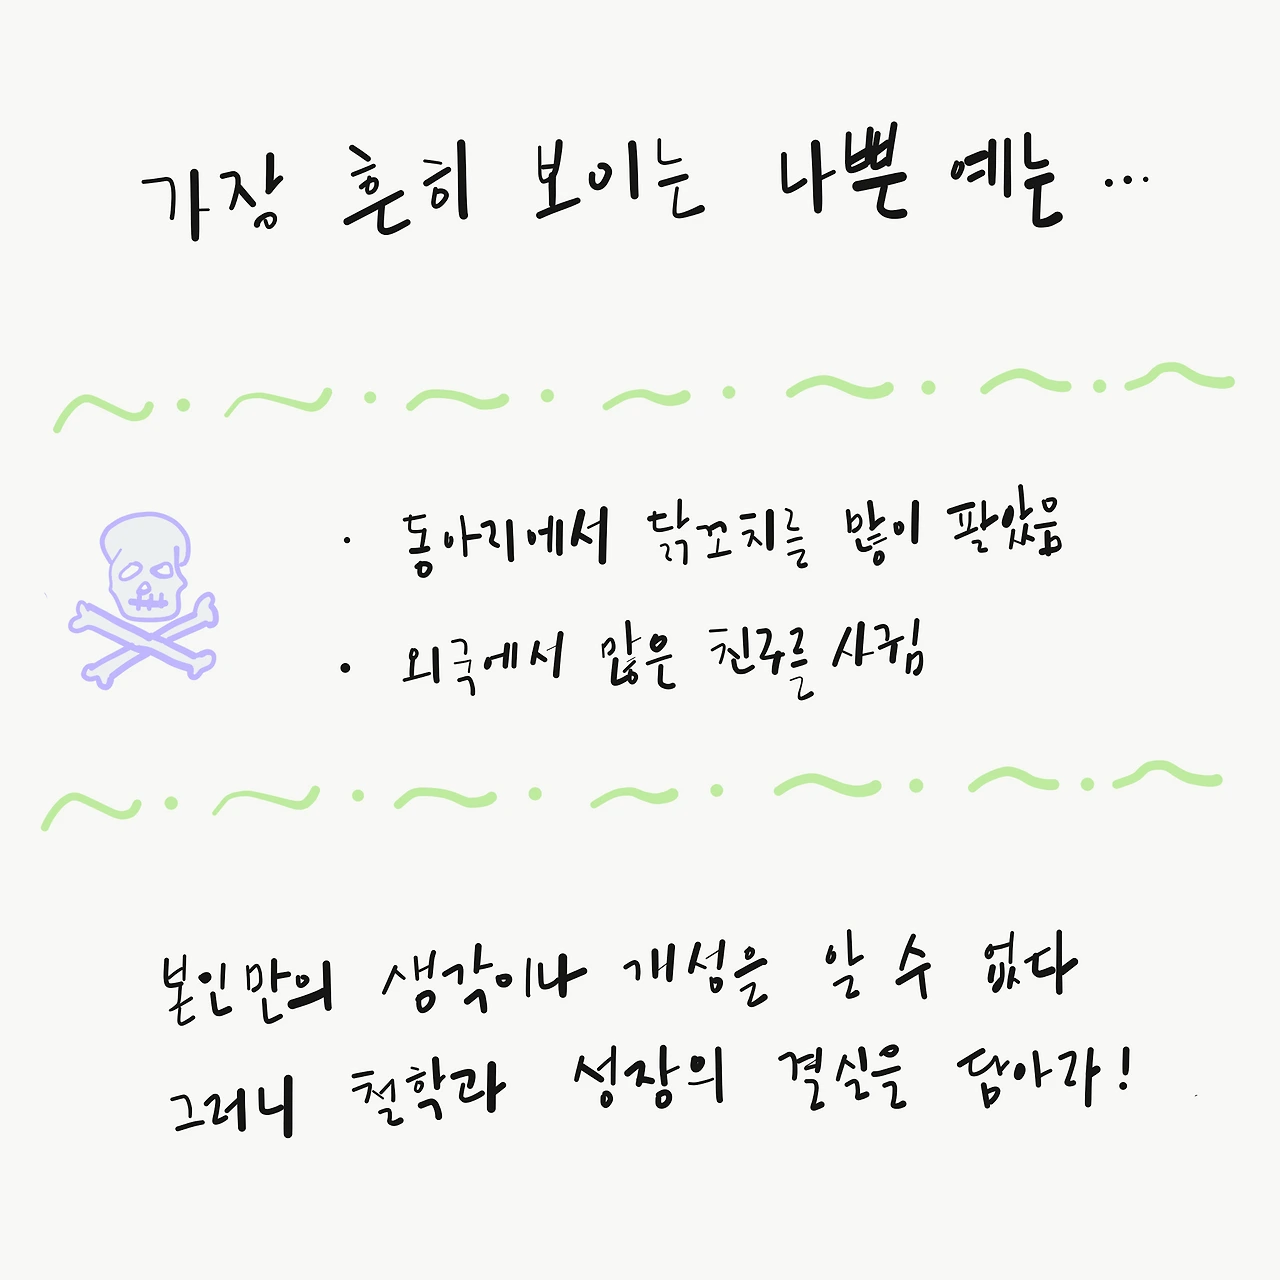 가장 흔히 보이는 나쁜 예는 ...
· 동아리에서 닭꼬치를 많이 팔았음
· 외국에서 많은 친구를 사귐
본인만의 생각이나 개성을 알 수 없다
그러니 철학과 성장의 결실을 담아라!